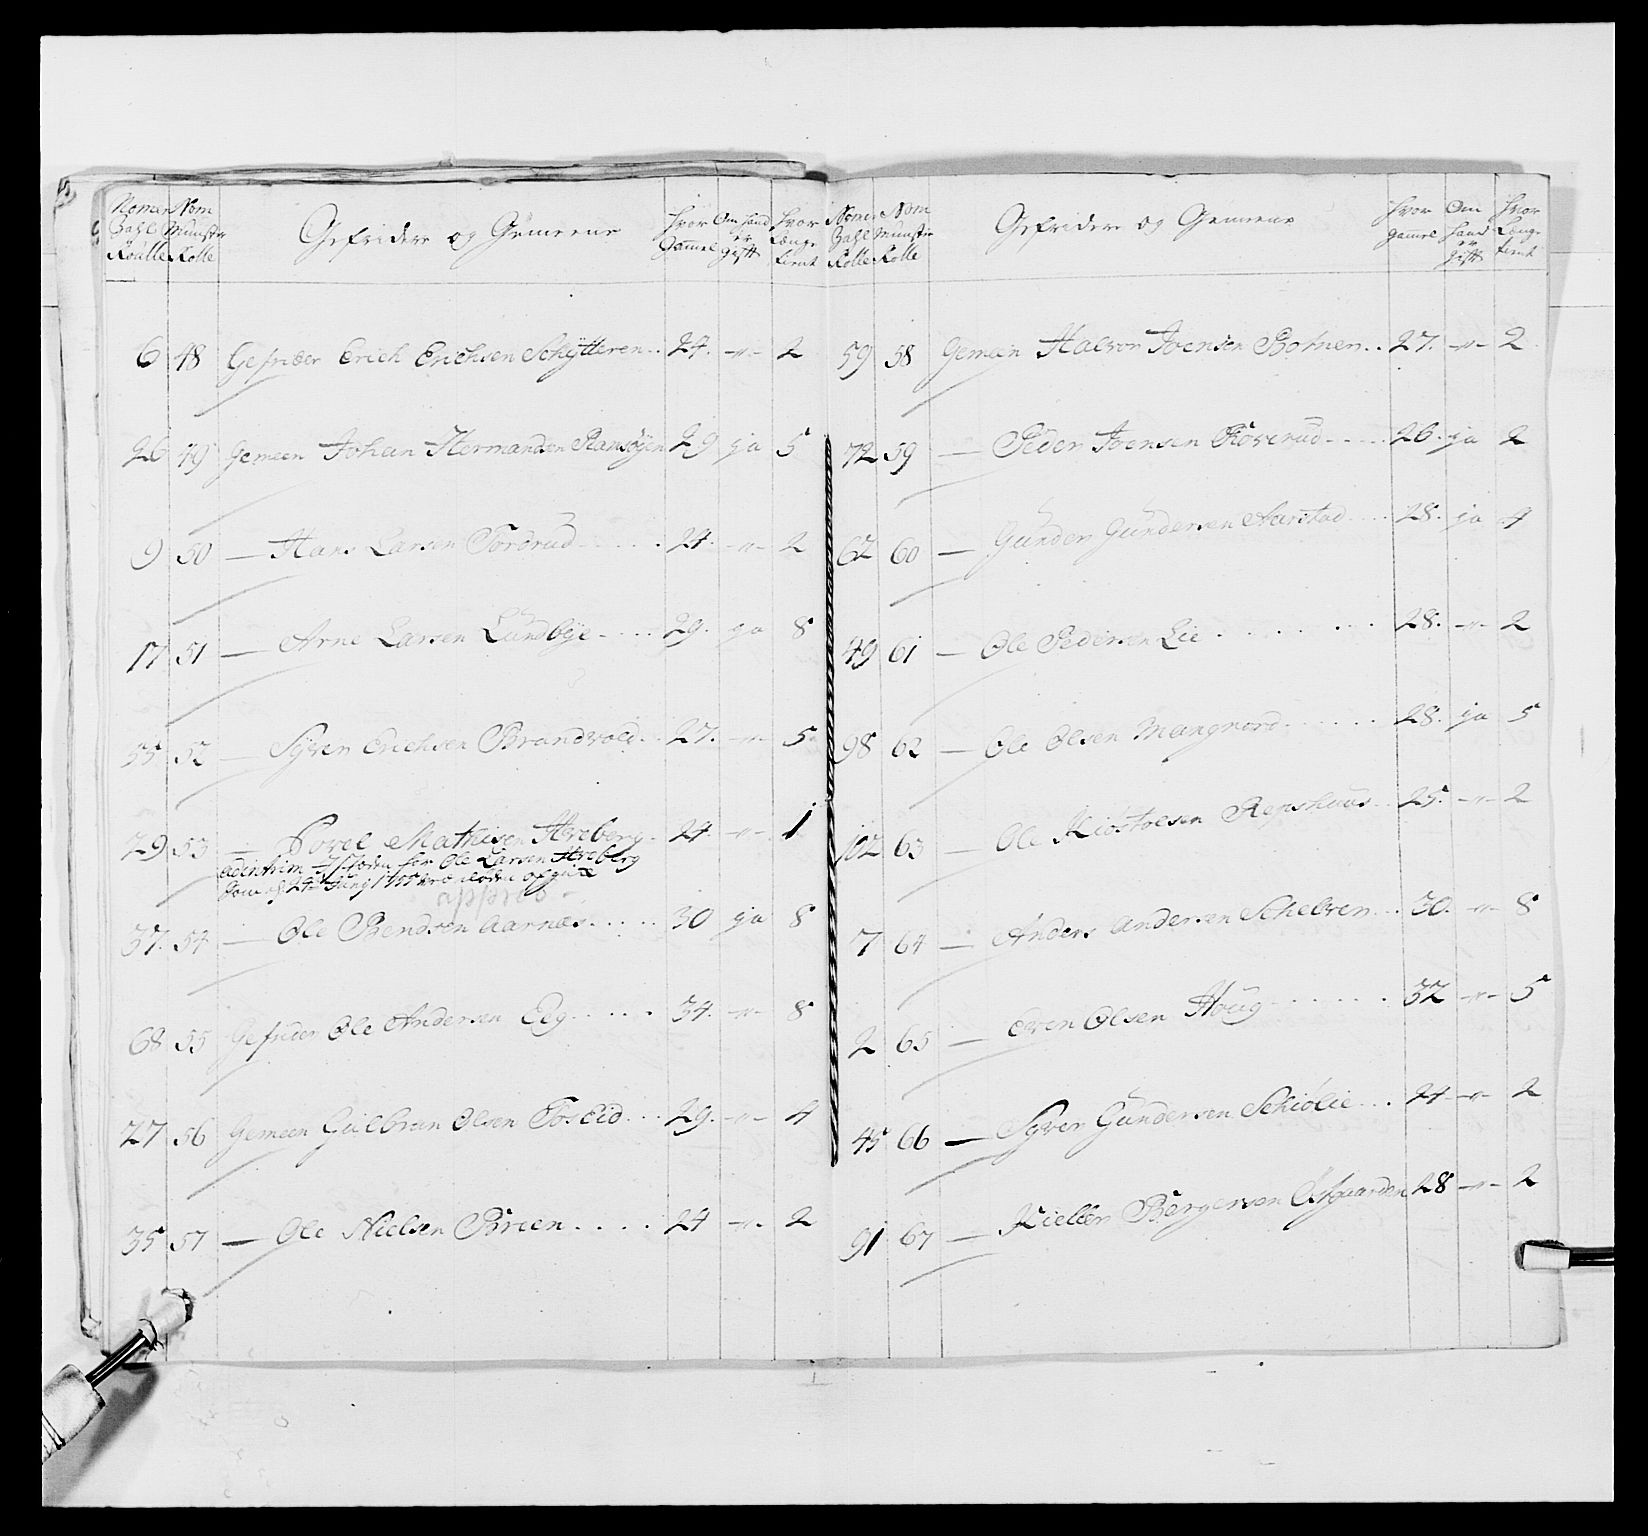 Nomer Zahl Roulle | Nom Munster Rolle | Gefridere og Gemeene | Hvor Gamel | Om hand er Gift | Hvor Længe tient
6 48 Gefrider Erich Erichsen Schÿtteren.. 24. -"- 2
26 49 Gemeen Johan Hermandsen Ramsøÿen 29 ja 5
9 50 — Hans Larsen Tordrud..... 24. -"- 2
17 51 — Arne Larsen Lundbye.... 29. ja 8
55 52 — Syver Erichsen Brandvold.. 27. -"- 5
29 53 — Povel Mathisen Hreberg. 24. -"- 1
for Ole Larsen Hreberg
approb
37. 54 — Ole Bendsen Aarnæs..... 30 ja 8
68 55 Gefrider Ole Andersen Eeg..... 34. -"- 8
27 56 Gemeen Gulbran Olsen Tosteid... 29. -"- 4
35 57 — Ole Nielsen Breen.... 24 -"- 2
Nomer Zahl Rolle | Nom Munster Rolle | Gefridere og Gemeene | Hvor Gamel | Om hand er Gift | Hvor Længe tient
59 58 Gemeen Halvor Joensen Botner.. 27. -"- 2
72 59 — Peder Joensen Kaserud.... 26. ja 2
62 60 — Gunder Gundersen Aarstad.... 28. ja 4
49 61 — Ole Pedersen Lie....... 28. -"- 2
98 62 — Ole Olsen Mangnord...... 28. ja 5
102 63 — Ole Kiøstolsen Repshuus.. 25. -"- 2
7 64 — Anders Andersen Schelven... 30. -"- 8
2 65 — Even Olsen Houg....... 32 -"- 5
45 66 — Syver Gundersen Schiølie... 24 -"- 2
91 67 — Kield Bergersen Østgaarden 28 -"- 2